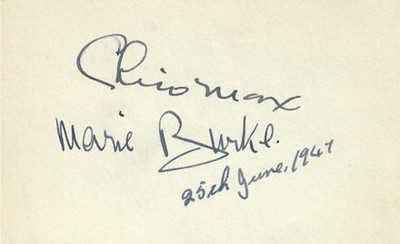 Chico Marx
Marie Burke.
25th June, 1947